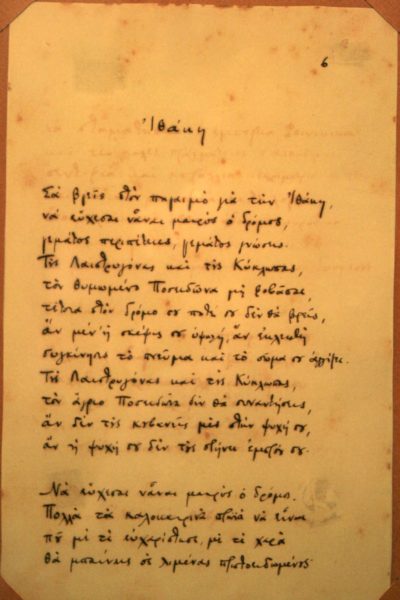 6
Ἰθάκη
Σὰ βγῇς στὸν πηαιμὸ γιὰ τὴν Ἰθάκη,
νὰ εὔχεσαι νἆναι μακρὺς ὁ δρόμος,
γεμάτος περιπέτειες, γεμάτος γνώσεις.
Τοὺς Λαιστρυγόνας καὶ τοὺς Κύκλωπας,
τὸν θυμωμένο Ποσειδῶνα μὴ φοβᾶσαι,
τέτοια στὸν δρόμο σου ποτέ σου δὲν θὰ βρεῖς,
ἂν μέν’ ἡ σκέψις σου ὑψηλή, ἂν ἐκλεκτὴ
συγκίνησις τὸ πνεῦμα καὶ τὸ σῶμα σου ἀγγίζει.
Τοὺς Λαιστρυγόνας καὶ τοὺς Κύκλωπας,
τὸν ἄγριο Ποσειδῶνα δὲν θὰ συναντήσεις,
ἂν δὲν τοὺς κουβανεῖς μὲς στὴν ψυχή σου,
ἂν ἡ ψυχή σου δὲν τοὺς στήνει ἐμπρός σου.
Νὰ εὔχεσαι νἆναι μακρὺς ὁ δρόμος.
Πολλὰ τὰ καλοκαιρινὰ πρωϊὰ νὰ εἶναι
ποῦ μὲ τί εὐχαρίστησι, μὲ τί χαρὰ
θὰ μπαίνεις σὲ λιμένας πρωτοειδωμένους·